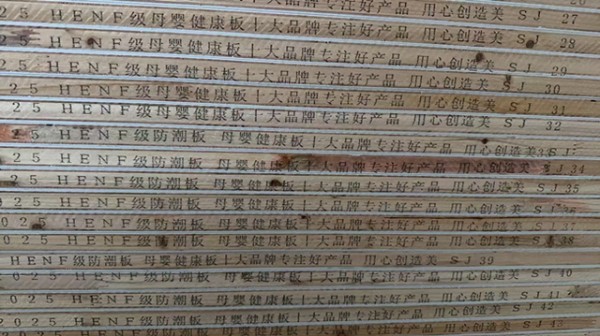 25 HENF级母婴健康板|大品牌专注好产品 用心创造美 SJ 27
25 HENF级母婴健康板|大品牌专注好产品 用心创造美 SJ 28
25 HENF级母婴健康板|大品牌专注好产品 用心创造美 SJ 29
25 HENF级母婴健康板|大品牌专注好产品 用心创造美 SJ 30
25 HENF级母婴健康板|大品牌专注好产品 用心创造美 SJ 31
25 HENF级母婴健康板|大品牌专注好产品 用心创造美 SJ 32
25 HENF级防潮板 母婴健康板|大品牌专注好产品 用心创造美
25 HENF级防潮板 母婴健康板|大品牌专注好产品 用心创造美 SJ 34
25 HENF级防潮板 母婴健康板|大品牌专注好产品 用心创造美 SJ 35
025 HENF级防潮板 母婴健康板|大品牌专注好产品 用心创造美 SJ
025 HENF级防潮板 母婴健康板|大品牌专注好产品 用心创造美 SJ 38
HENF级防潮板 母婴健康板|大品牌专注好产品 用心创造美 SJ 39
025 HENF级防潮板 母婴健康板|大品牌专注好产品 用心创造美 SJ 40
025 HENF级防潮板 母婴健康板|大品牌专注好产品 用心创造美 SJ 41
025 HENF级防潮板 母婴健康板|大品牌专注好产品 用心创造美 SJ